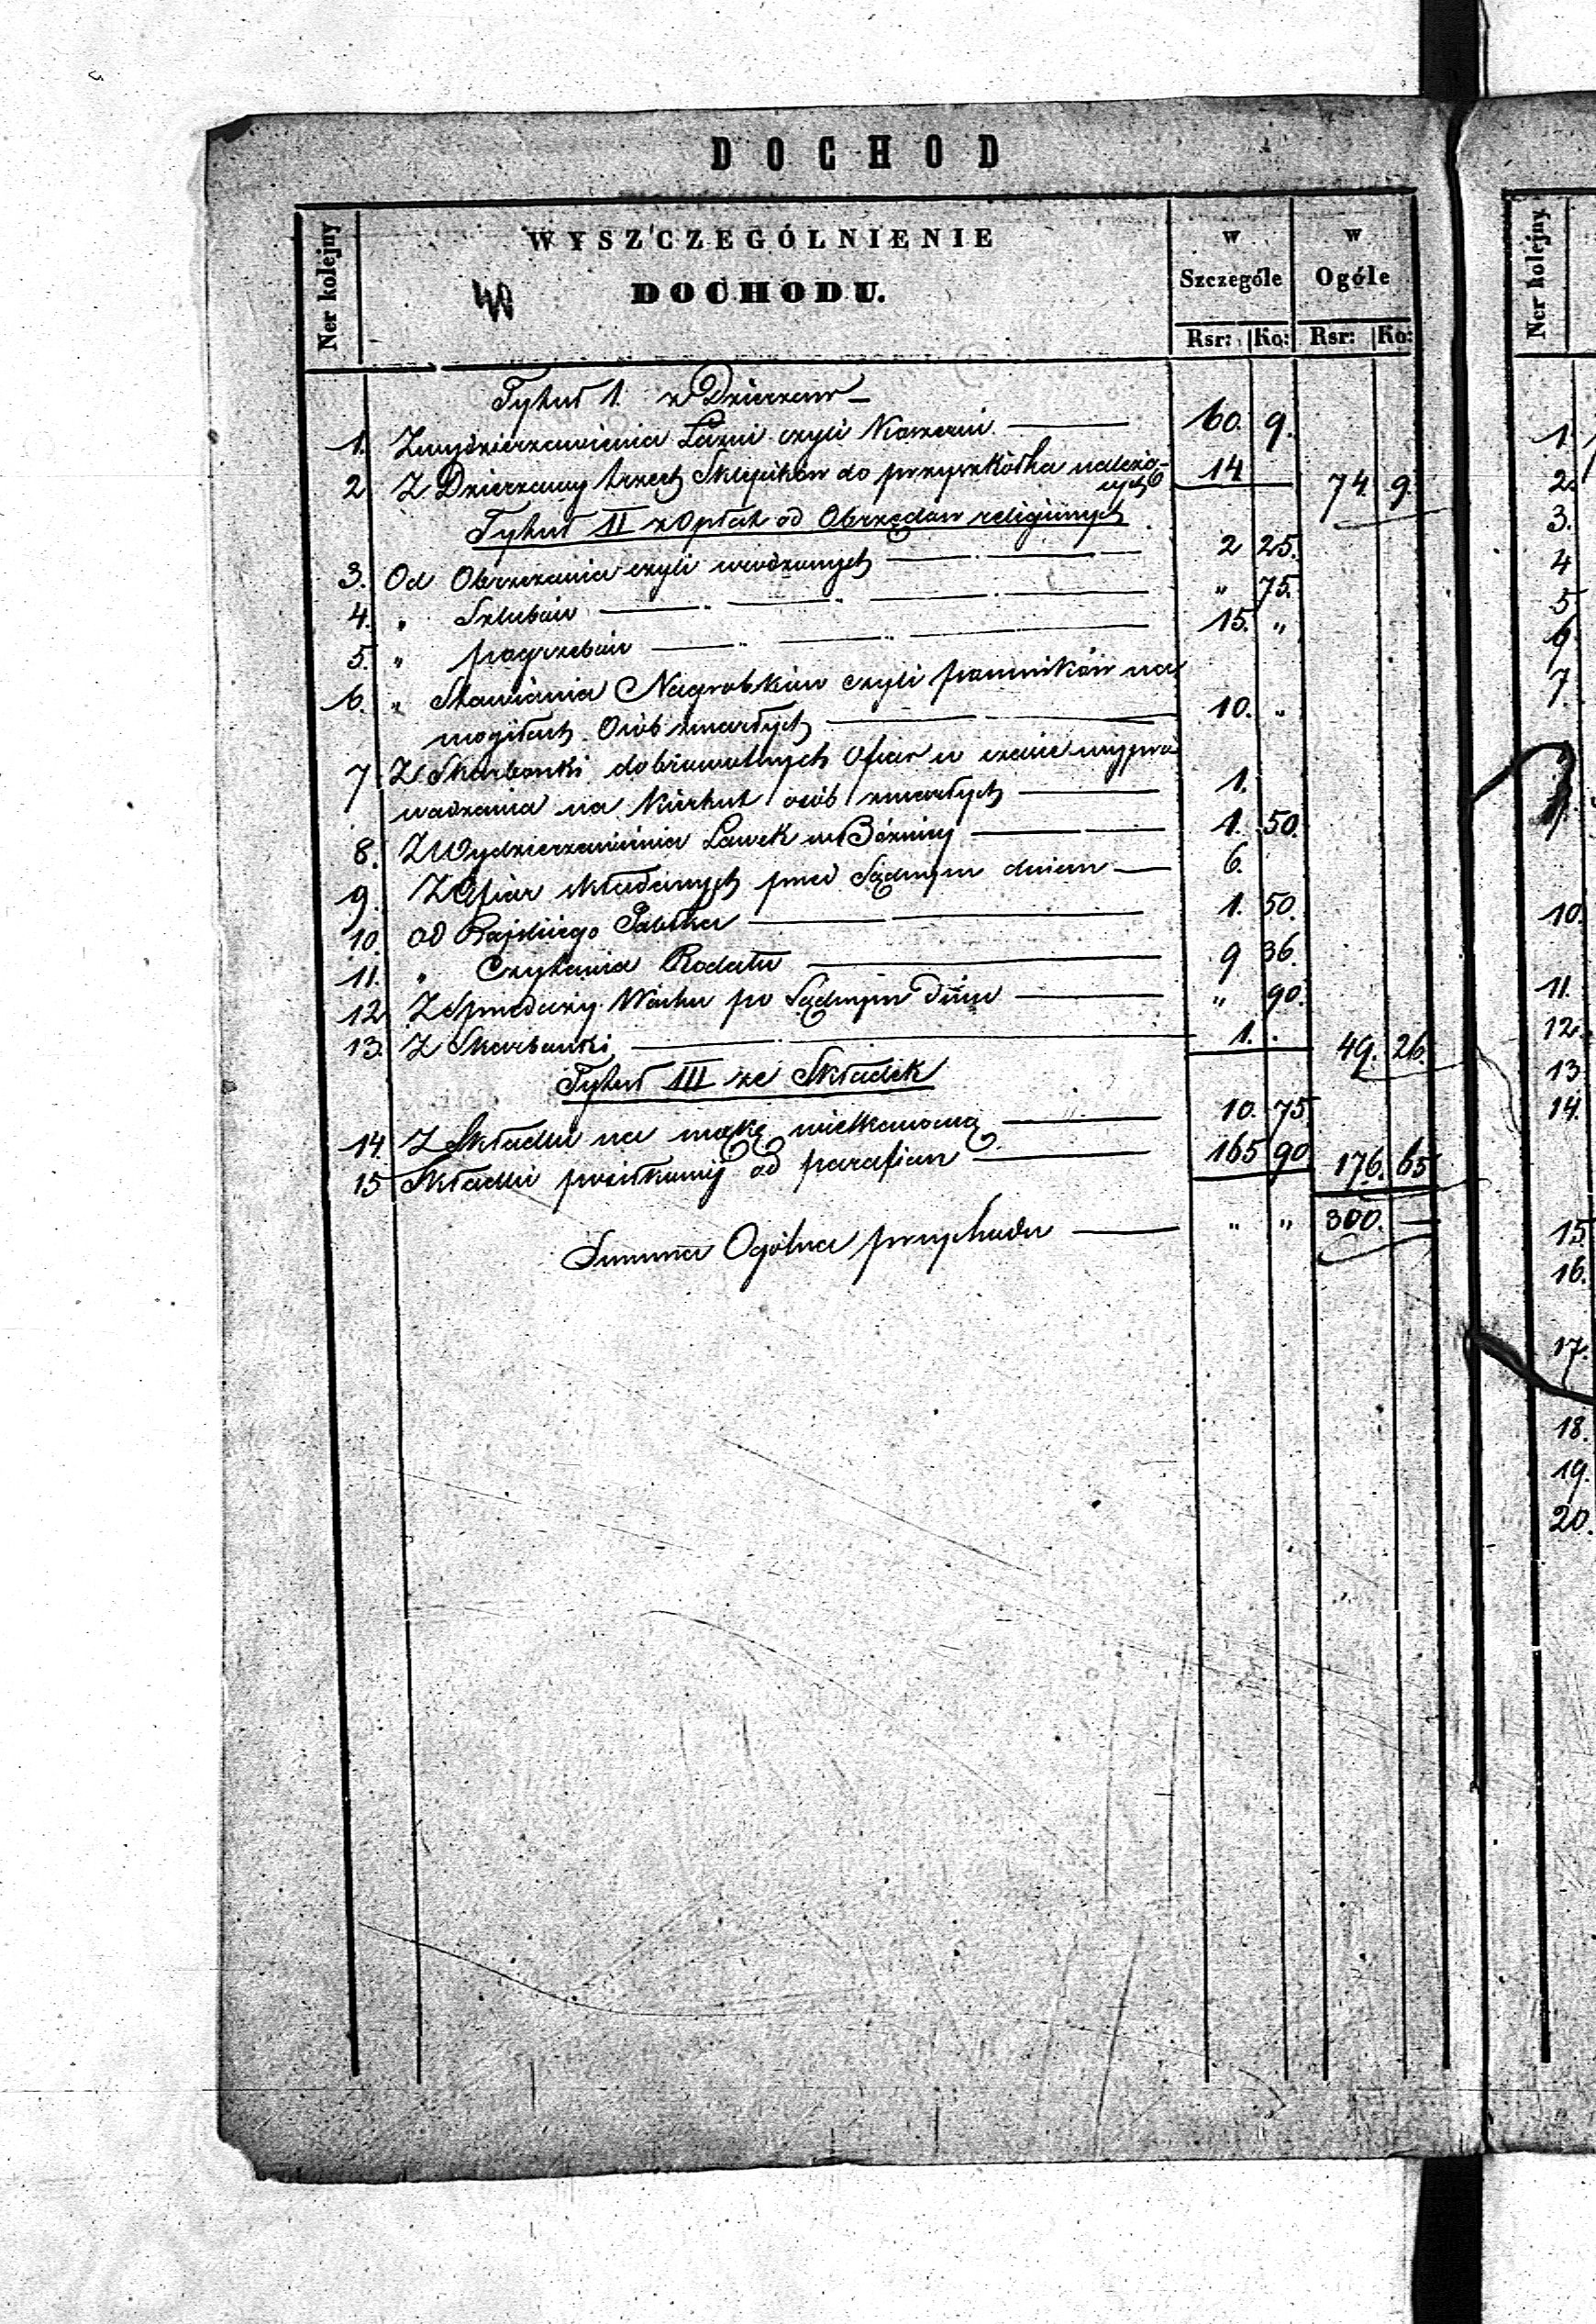 DOCHOD
Ner kolejny
WYSZCZEGÓLNIENIE
DOCHODU.
w Szczególe
w Ogóle
Rsr: Ko: Rsr: Ko:
Tytuł 1. z Dzierzaw
1. Z wydzierzawienia Łazni czyli Koszerni 60. 9.
2 Z Dzierzawy trzech Sklepików do przyszkółka należą- 14 74. 9.
cych
Tytuł II z Opłat od Obrzędów religijnych
3. Od Obrzezania czyli urodzonych 2 25.
4. " Szlubów " 75.
5. " pogrzebów 15. "
6. " Stawiania Nagrobków czyli pomników na
mogiłach Osób zmarłych 10. "
7. Z Skarbonki dobrowolnych Ofiar w czasie wypro
wadzania na Kierkut osób zmarłych 1.
8. Z Wydzierzawienia Ławek w Bóżnicy 1. 50.
9. Z Ofiar składanych przed Sądnym dniem 6.
10. od Rajskiego Jabłka 1. 50.
11. " Czytania Rodału 9 36.
12 Z Sprzedaży Wosku po Sądnym Dniu " 90.
13. Z Skarbonki 1. . 49. 26.
Tytuł III ze Składek
14. Z Składki na mąkę wielkanocną 10. 75.
15 Składki od parafian 165 90 176. 65
Summa Ogólna przychodu " " 300. —
Ner kolejny
1.
2.
3.
4
5
6
7.
10.
11.
12.
13
14.
15.
16.
17.
18.
19.
20.